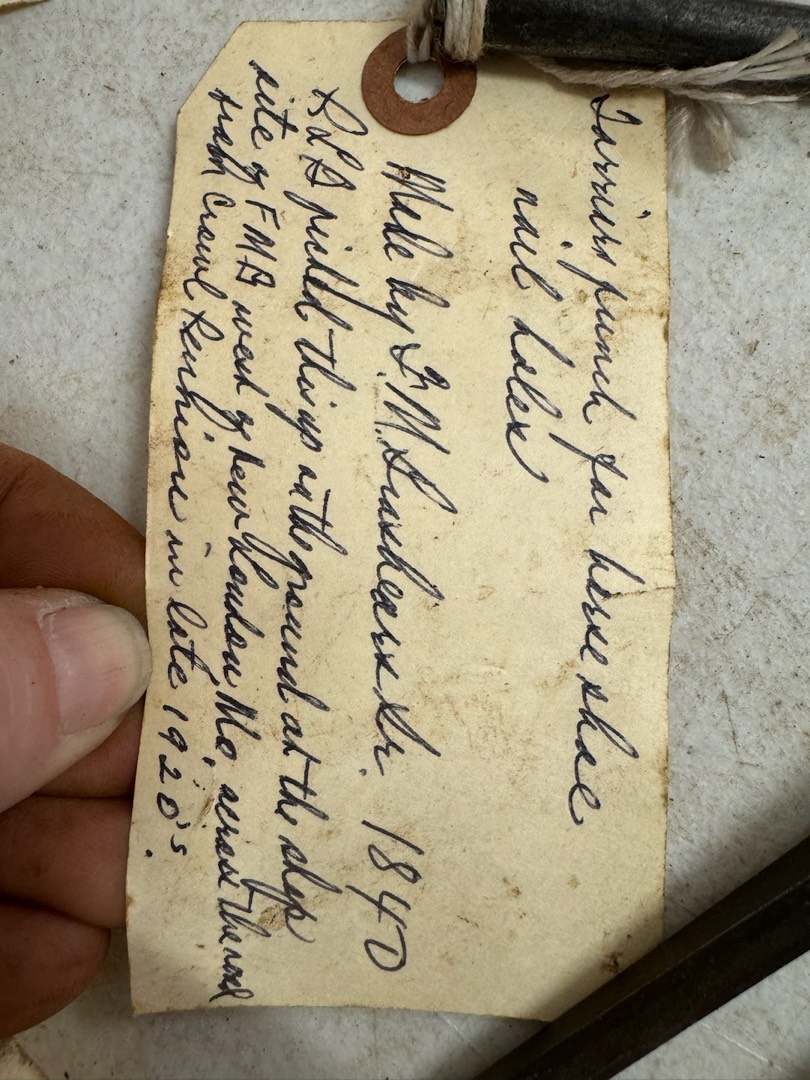 Farriers punch for horse shoe
nail holes
Made by F. M. Brashears Sr. 1840
R L B picked this up on the ground at the shop
site of F M B west of New London Mo, across the road
from Crowl in late 1920's.